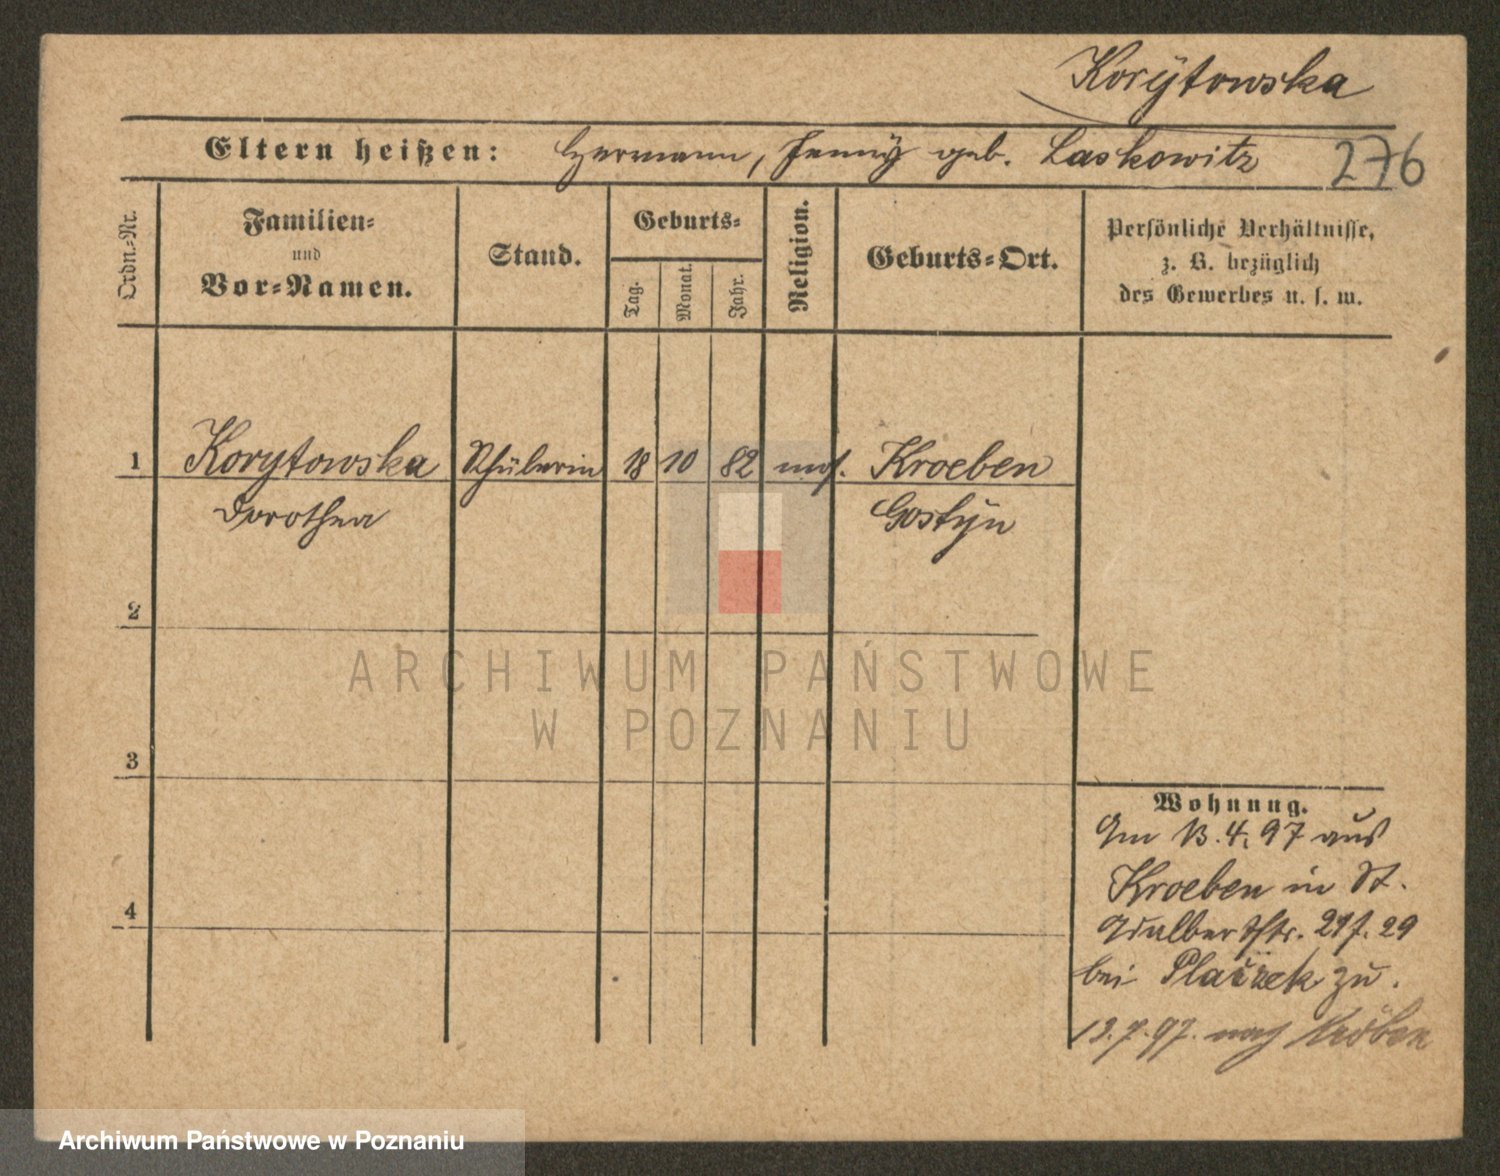 Korÿtowska
Eltern heißen: Hermann, Jenny geb. Laskowitz 276
Ordn.-Nr.
Familien-
und
Vor-Namen.
Stand.
Geburts-
Tag.
Monat.
Jahr.
Religion.
Geburts-Ort.
Persönliche Verhältnisse,
z. B. bezüglich
des Gewerbes u. s. w.
1 Korytowska Schülerin 18 10 82 mos. Kroeben
Dorothea Gostyn
2
3
4
ARCHIWUM PAŃSTWOWE
W POZNANIU
Wohnung.
Am 13.4.97 aus
Kroeben in St.
Adalbertstr. 29
bei zu.
13.7.97. nach Kröben
Archiwum Państwowe w Poznaniu